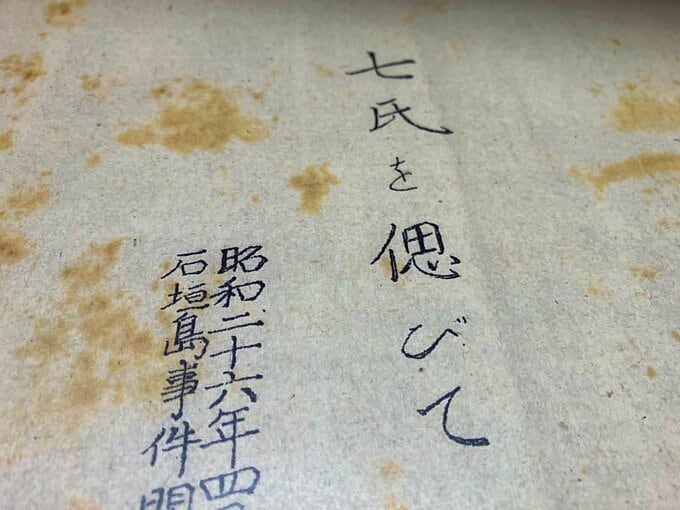 七氏を偲びて
昭和二十六年四
石垣島事件